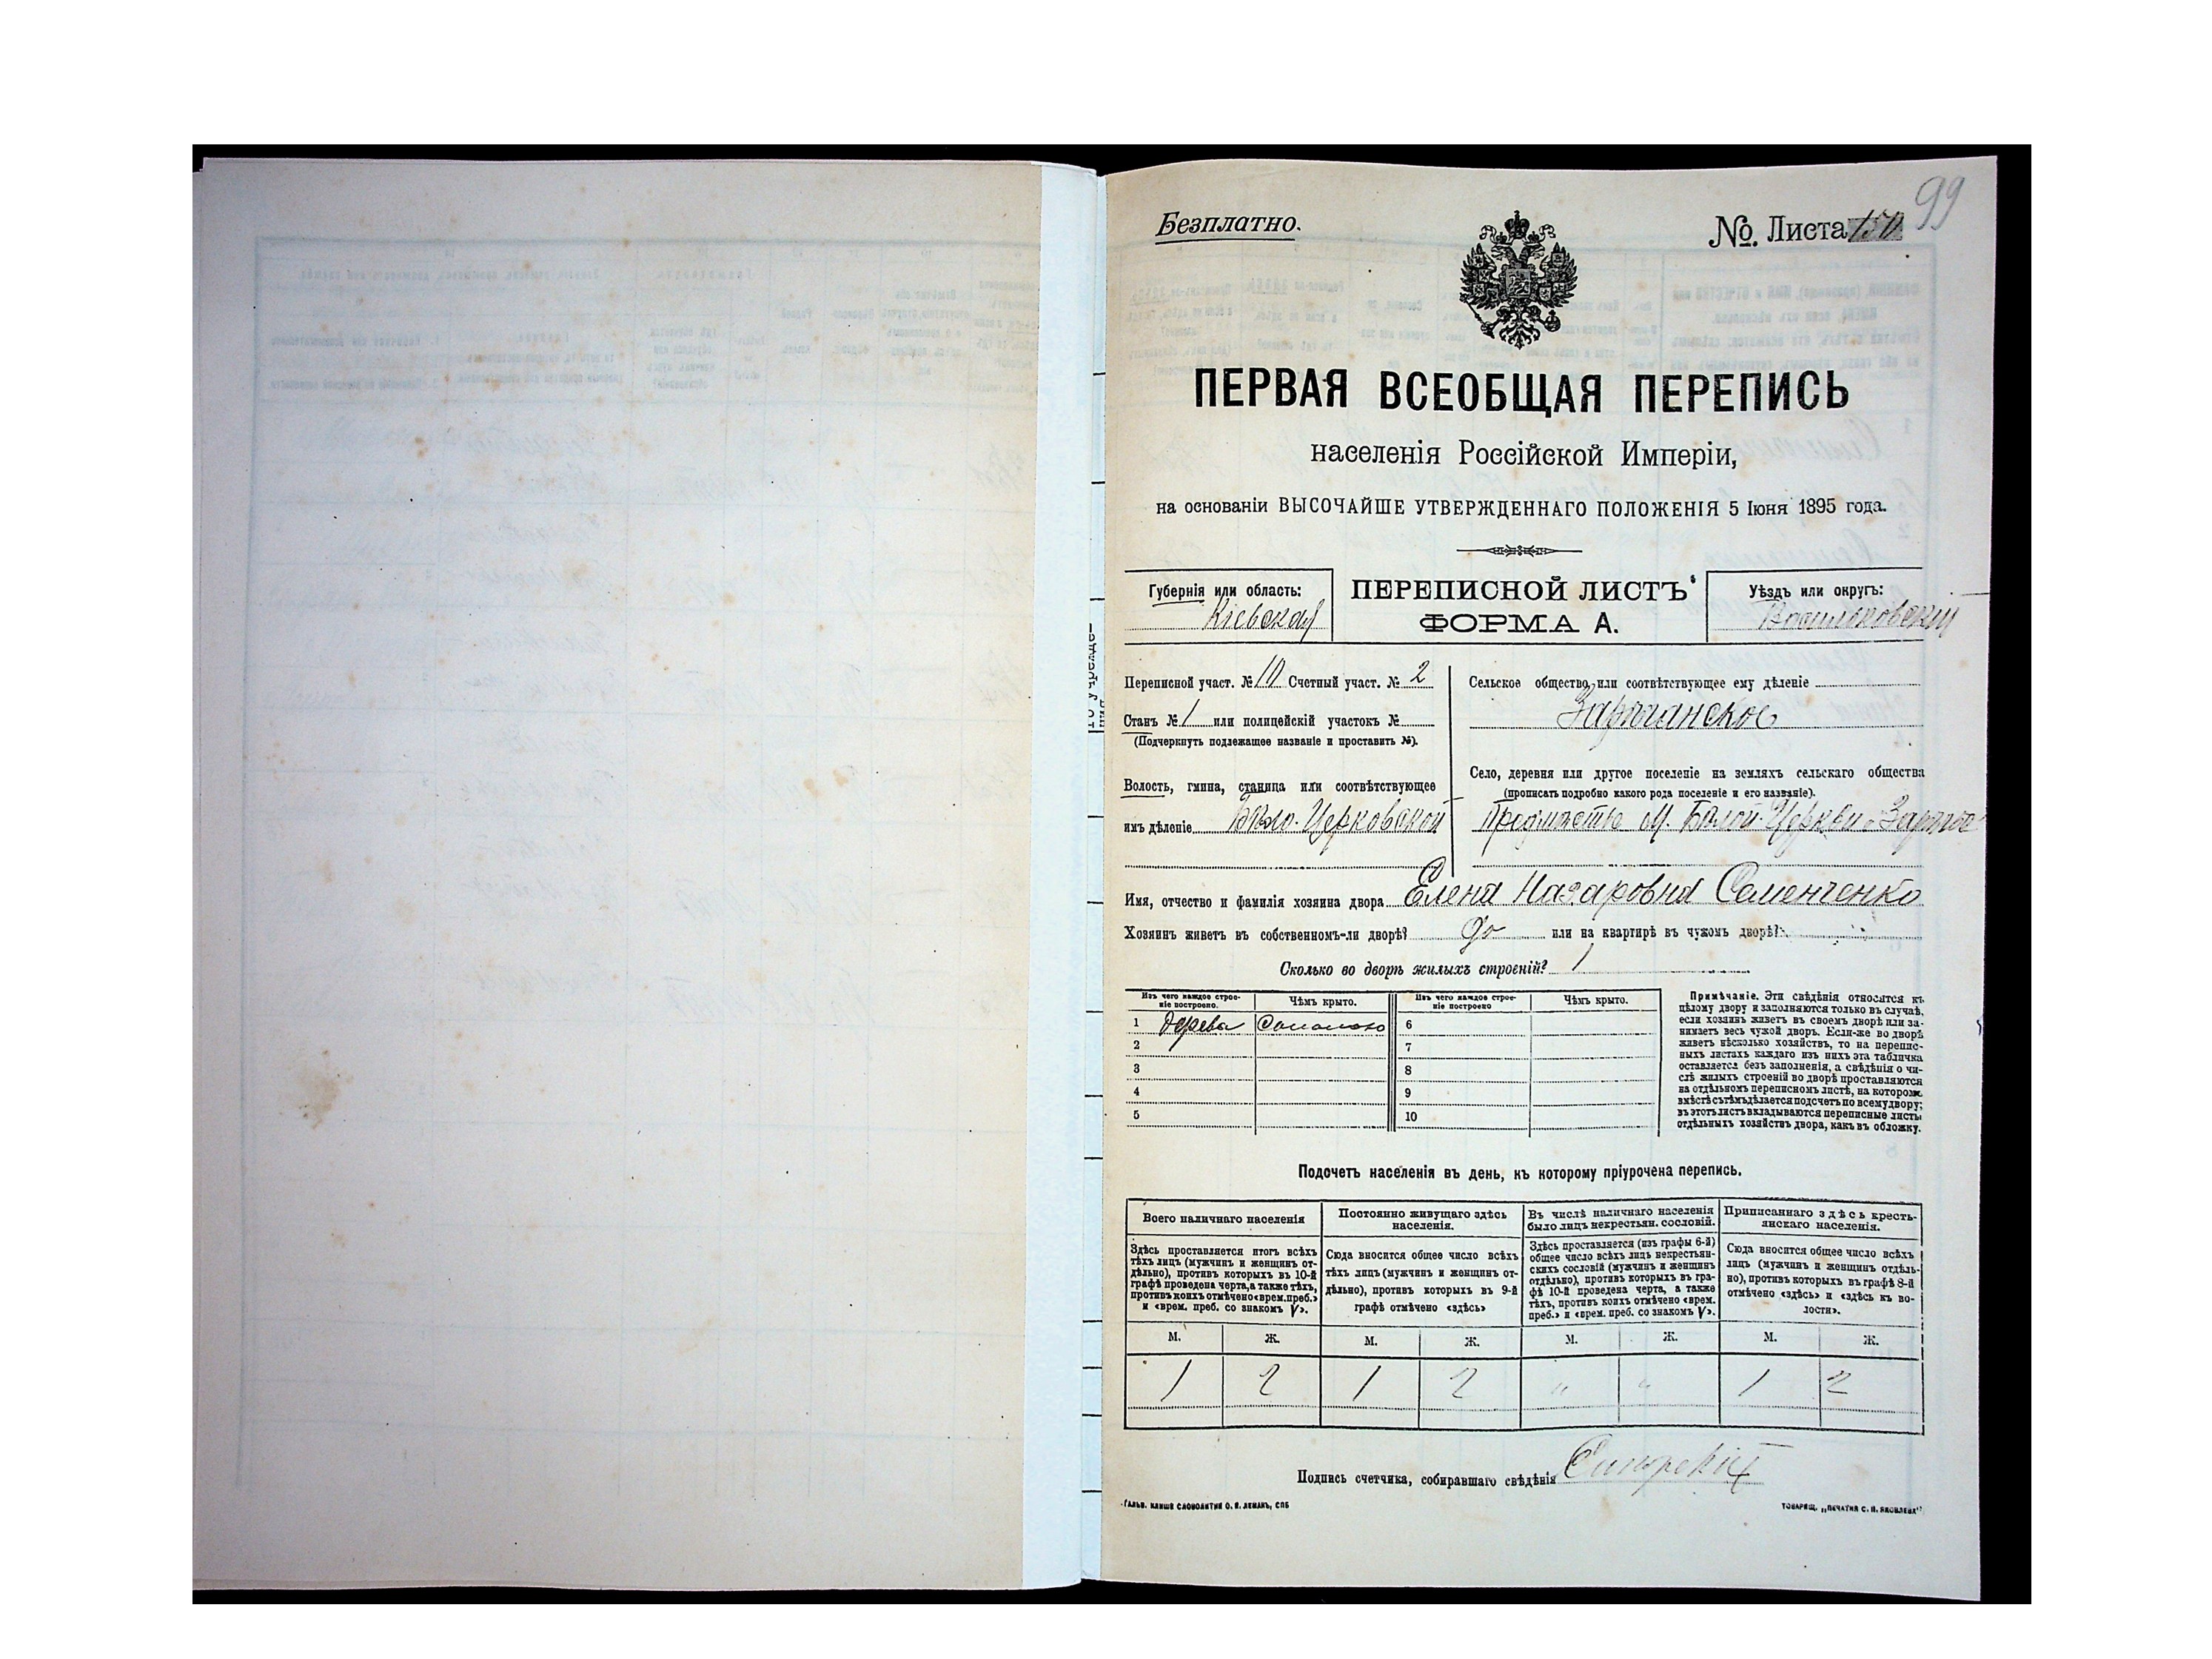 99
Безплатно.
№ Листа
ПЕРВАЯ ВСЕОБЩАЯ ПЕРЕПИСЬ
населенія Россійской Имперіи,
на основаніи ВЫСОЧАЙШЕ УТВЕРЖДЕННАГО ПОЛОЖЕНІЯ 5 Іюня 1895 года.
Губернія или область:
Кіевская
ПЕРЕПИСНОЙ ЛИСТЪ
ФОРМА А.
Уѣздъ или округъ:
Васильковскій
Переписной участ. № 10 Счетный участ. № 2
Станъ № 1 или полицейскій участокъ №
(Подчеркнуть подлежащее названіе и проставить №).
Волость, гмина, станица или соотвѣтствующее
имъ дѣленіе Бѣло-Церковской
Сельское общество, или соотвѣтствующее ему дѣленіе
Зарѣчанское
Село, деревня или другое поселеніе на земляхъ сельскаго общества
(прописать подробно какого рода поселеніе и его названіе).
Предмѣстье М. Бѣлой-Церкви Зарѣчье
Имя, отчество и фамилія хозяина двора Елена Назаровна Семенченко
Хозяинъ живетъ въ собственномъ-ли дворѣ? да или на квартирѣ въ чужомъ дворѣ?
Сколько во дворѣ жилыхъ строеній? 1
Изъ чего каждое строеніе построено.
Чѣмъ крыто.
Изъ чего каждое строеніе построено
Чѣмъ крыто.
1 дерева Соломою 6
2 7
3 8
4 9
5 10
Примѣчаніе. Эти свѣдѣнія относятся къ
цѣлому двору и заполняются только въ случаѣ,
если хозяинъ живетъ въ своемъ дворѣ или за-
нимаетъ весь чужой дворъ. Если-же во дворѣ
живетъ нѣсколько хозяйствъ, то на перепис-
ныхъ листахъ каждаго изъ нихъ эта табличка
оставляется безъ заполненія, а свѣдѣнія о чи-
слѣ жилыхъ строеній во дворѣ проставляются
на отдѣльномъ переписномъ листѣ, на которомъ
вмѣстѣ съ тѣмъ дѣлается подсчетъ по всему двору;
въ этотъ листъ вкладываются переписные листы
отдѣльныхъ хозяйствъ двора, какъ въ обложку.
Подсчетъ населенія въ день, къ которому пріурочена перепись.
Всего наличнаго населенія
Здѣсь проставляется итогъ всѣхъ
тѣхъ лицъ (мужчинъ и женщинъ от-
дѣльно), противъ которыхъ въ 10-й
графѣ проведена черта, а также тѣхъ,
противъ коихъ отмѣчено «врем. преб.»
и «врем. преб. со знакомъ V».
Постоянно живущаго здѣсь
населенія.
Сюда вносится общее число всѣхъ
тѣхъ лицъ (мужчинъ и женщинъ от-
дѣльно), противъ которыхъ въ 9-й
графѣ отмѣчено «здѣсь»
Въ числѣ наличнаго населенія
было лицъ некрестьян. сословій.
Здѣсь проставляется (изъ графы 6-й)
общее число всѣхъ лицъ некрестьян-
скихъ сословій (мужчинъ и женщинъ
отдѣльно), противъ которыхъ въ гра-
фѣ 10-й проведена черта, а также
тѣхъ, противъ коихъ отмѣчено «врем.
преб.» и «врем. преб. со знакомъ V».
Приписаннаго здѣсь кресть-
янскаго населенія.
Сюда вносится общее число всѣхъ
лицъ (мужчинъ и женщинъ отдѣль-
но), противъ которыхъ въ графѣ 8-й
отмѣчено «здѣсь» и «здѣсь къ во-
лости».
М. Ж. М. Ж. М. Ж. М. Ж.
1 2 1 2 „ „ 1 2
Подпись счетчика, собиравшаго свѣдѣнія
ГАЛЬВ. КЛИШЕ СЛОВОЛИТНИ О. И. ЛЕМАНЪ, СПБ
ТОВАРИЩ. „ПЕЧАТНЯ С. П. ЯКОВЛЕВА"